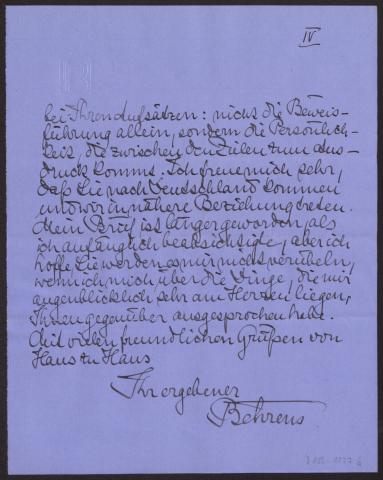 IV
bei Ihren Aufsätzen: nicht die Beweis-
führung allein, sondern die Persönlich-
keit, die zwischen den Zeilen zum Aus-
druck kommt. Ich freue mich sehr,
daß Sie nach Deutschland kommen
und wir in nähere Beziehung treten.
Mein Brief ist länger geworden, als
ich anfänglich beabsichtigte, aber ich
hoffe, Sie werden es mir nicht verübeln,
wenn ich mich über die Dinge, die mir
augenblicklich sehr am Herzen liegen,
Ihnen gegenüber ausgesprochen habe.
Mit vielen freundlichen Grüßen von
Haus zu Haus
Ihr ergebener
Behrens